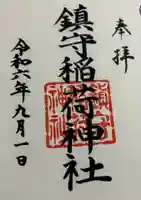 奉拝
鎮守稲荷神社
令和六年九月一日